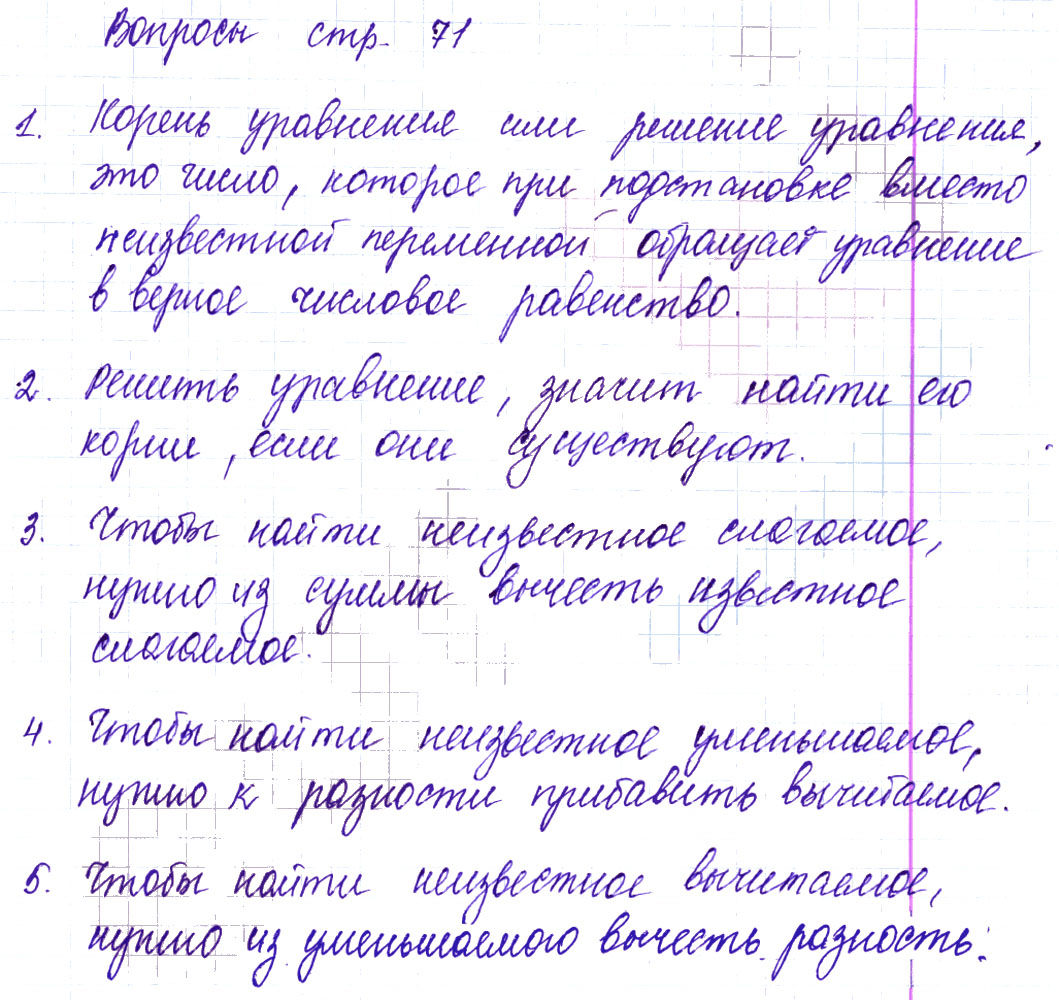 Вопросы стр. 71
1. Корень уравнения или решение уравнения,
это число, которое при подстановке вместо
неизвестной переменной обращает уравнение
в верное числовое равенство.
2. Решить уравнение, значит найти его
корни, если они существуют.
3. Чтобы найти неизвестное слагаемое,
нужно из суммы вычесть известное
слагаемое.
4. Чтобы найти неизвестное уменьшаемое,
нужно к разности прибавить вычитаемое.
5. Чтобы найти неизвестное вычитаемое,
нужно из уменьшаемого вычесть разность.